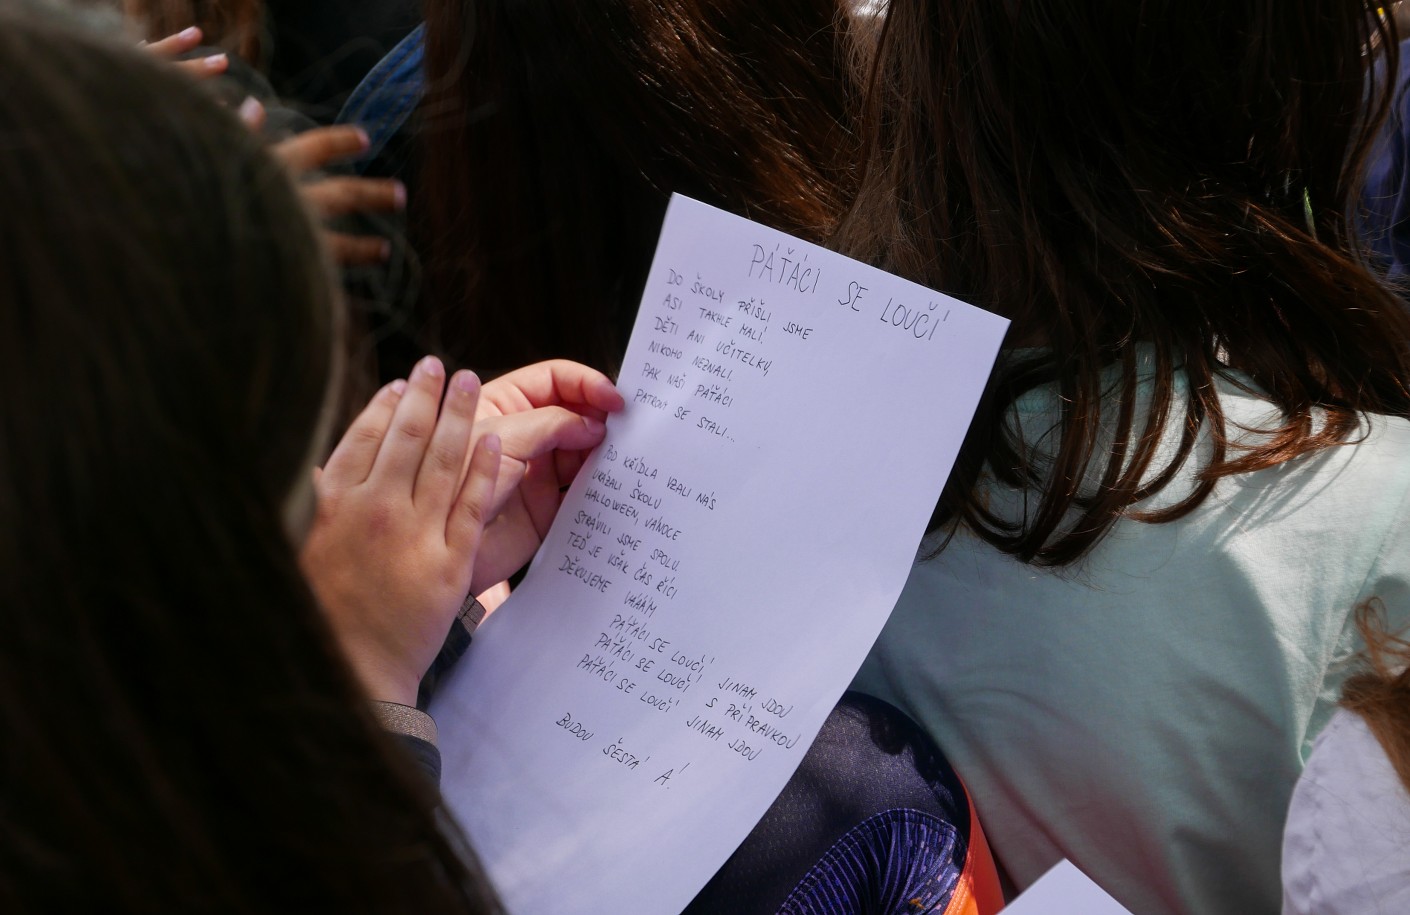 PÁŤÁCI SE LOUČÍ
DO ŠKOLY PŘIŠLI JSME
ASI TAKHLE MALÍ.
DĚTI ANI UČITELKU,
NIKOHO NEZNALI.
PAK NAŠI PÁŤÁCI
PATRONY SE STALI...
POD KŘÍDLA VZALI NÁS
UKÁZALI ŠKOLU
HALLOWEEN, VÁNOCE
STRÁVILI JSME SPOLU.
TEĎ JE VŠAK ČAS ŘÍCI
DĚKUJEME VÁÁÁM
PÁŤÁCI SE LOUČÍ, JINAM JDOU
PÁŤÁCI SE LOUČÍ S PŘÍPRAVKOU
PÁŤÁCI SE LOUČÍ JINAM JDOU
BUDOU ŠESTÁ Á!